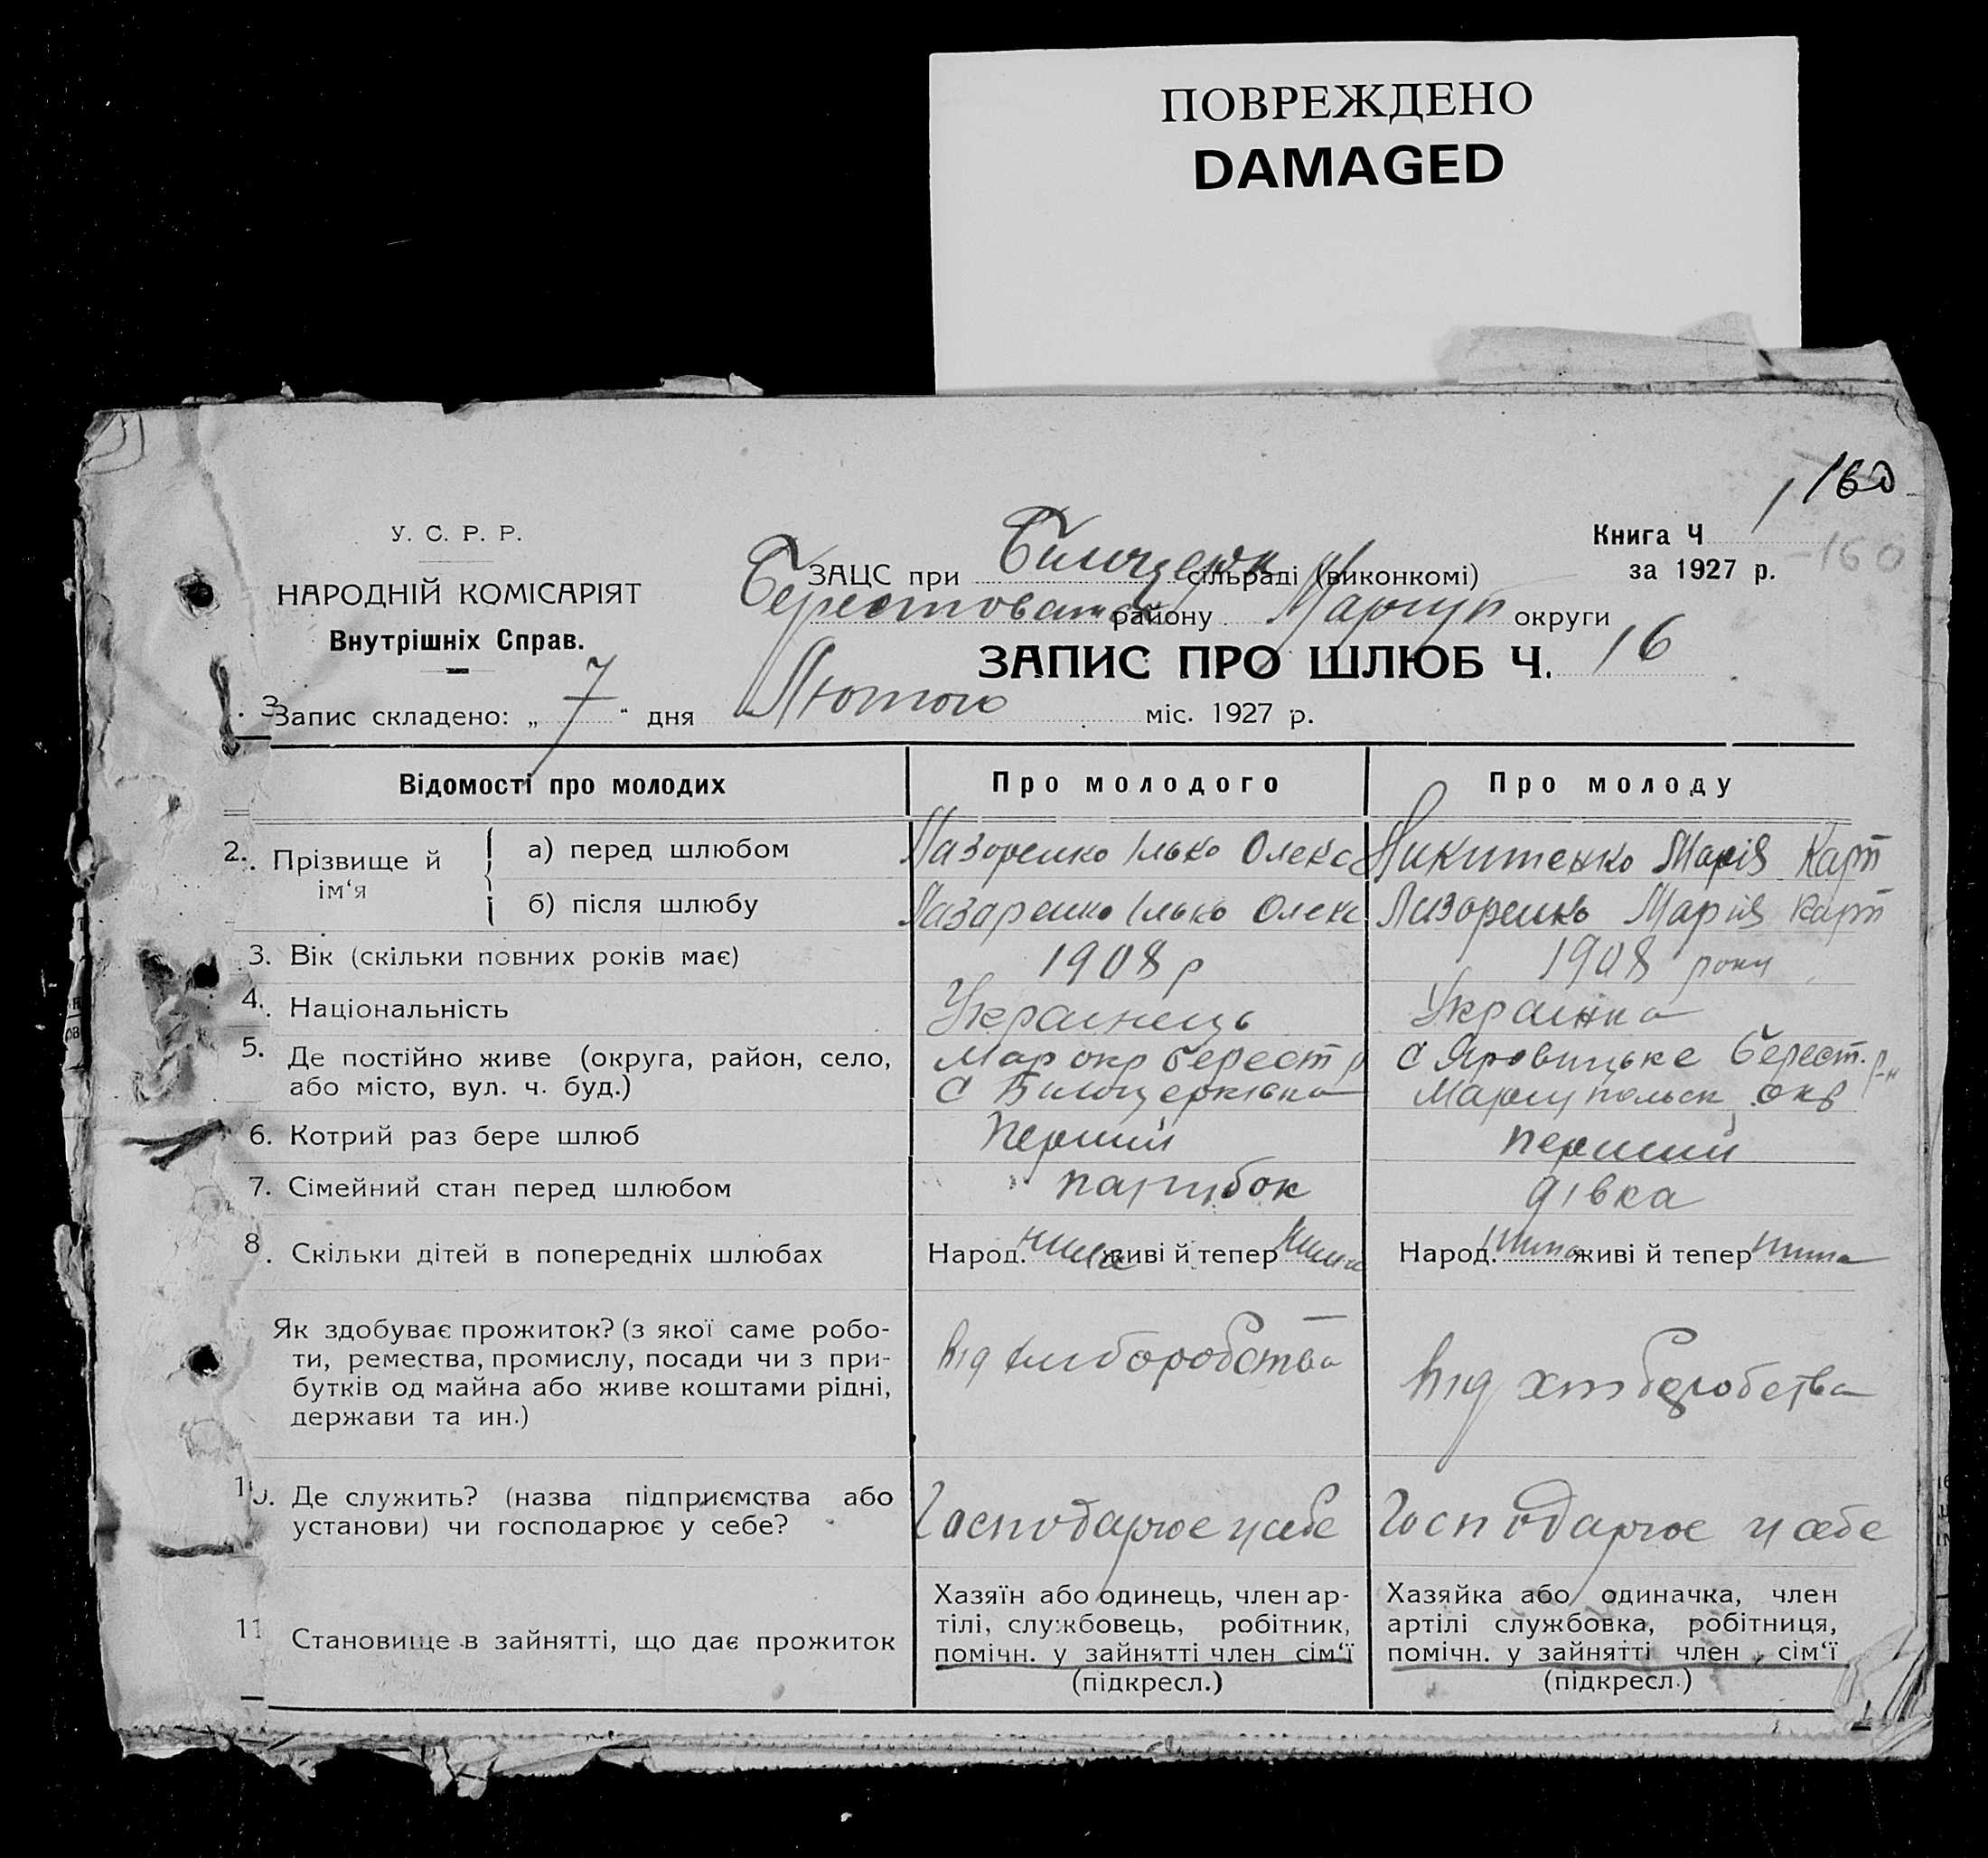 ПОВРЕЖДЕНО
DAMAGED
160
У. С. Р. Р.
Книга Ч
-160
НАРОДНІЙ КОМІСАРІЯТ
ЗАЦС при Білоцерк сільраді (виконкомі)
за 1927 р.
Внутрішніх Справ.
Берестован району Маріуп округи
ЗАПИС ПРО ШЛЮБ Ч. 16
Запис складено: „ 7 “ дня Лютого міс. 1927 р.
Відомості про молодих Про молодого Про молоду
2. Прізвище й ім‘я
а) перед шлюбом Лазоренко Ілько Олекс Никитенко Марія Карп
б) після шлюбу Лазаренко Ілько Олекс Лазоренко Марія Карп
3. Вік (скільки повних років має) 1908 р 1908 року
4. Національність Украінець Украінка
5. Де постійно живе (округа, район, село, Мар окр Берест р С Яровицьке Берест. р-н
або місто, вул. ч. буд.) С Білоцерківка Маріупольск окр
6. Котрий раз бере шлюб Перший перший
7. Сімейний стан перед шлюбом парубок дівка
8. Скільки дітей в попередніх шлюбах Народ. нима живі й тепер нима Народ. нима живі й тепер нима
Як здобуває прожиток? (з якої саме робо-
ти, ремества, промислу, посади чи з при-
бутків од майна або живе коштами рідні,
держави та ин.)
від хлиборобства
від хлиборобства
10. Де служить? (назва підприємства або
установи) чи господарює у себе?
Господарює у себе
Господарює у себе
11 Становище в зайнятті, що дає прожиток
Хазяїн або одинець, член ар-
тілі, службовець, робітник,
помічн. у зайнятті член сім‘ї
(підкресл.)
Хазяйка або одиначка, член
артілі службовка, робітниця,
помічн. у зайнятті член сім‘ї
(підкресл.)